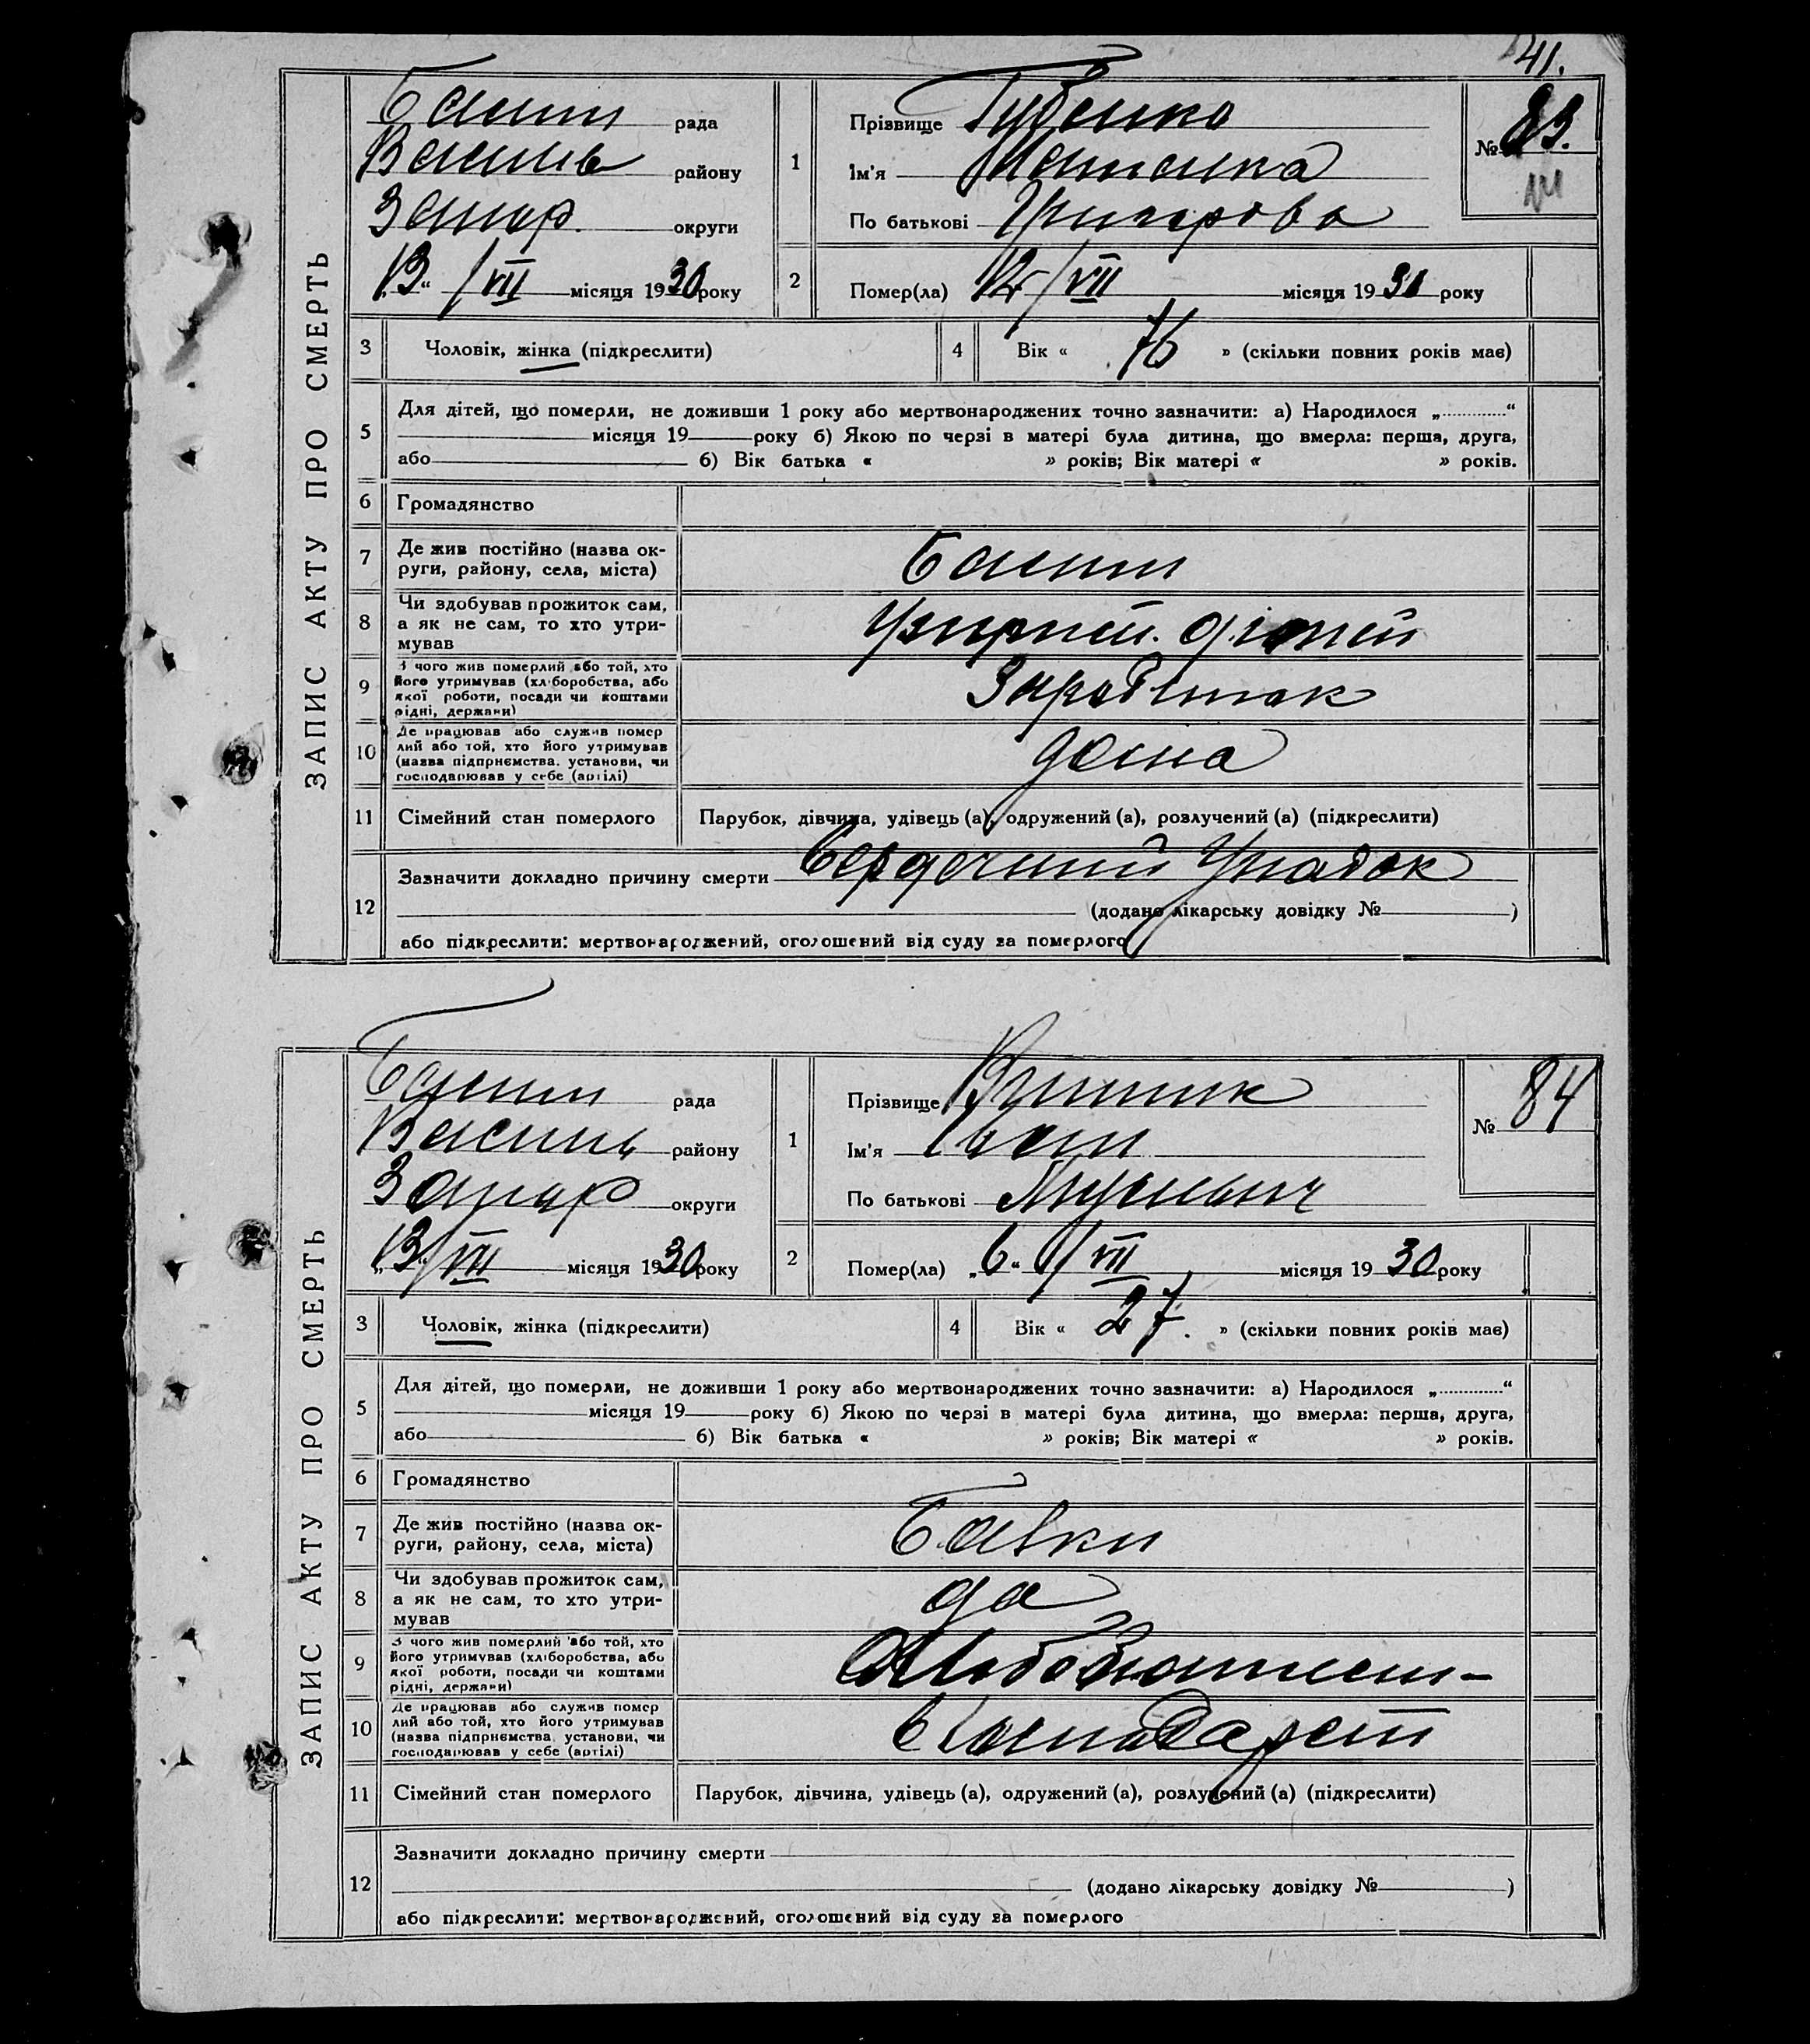 41.
ЗАПИС АКТУ ПРО СМЕРТЬ
рада
Василів району
Запор. округи
"13" / VII місяця 1930 року
1
Прізвище Губенко
Ім'я
По батькові
№ 83.
2
Помер(ла) 12 / VII місяця 1930 року
3 Чоловік, жінка (підкреслити)
4 Вік « 76 » (скільки повних років має)
5 Для дітей, що померли, не доживши 1 року або мертвонароджених точно зазначити: а) Народилося „ “
місяця 19 року б) Якою по черзі в матері була дитина, що вмерла: перша, друга,
або б) Вік батька « » років; Вік матері « » років.
6 Громадянство
7 Де жив постійно (назва ок-
руги, району, села, міста)
8 Чи здобував прожиток сам,
а як не сам, то хто утри-
мував
дітей
9 З чого жив померлий або той, хто
його утримував (хліборобства, або
якої роботи, посади чи коштами
рідні, держави)
Заработок
10 Де працював або служив помер
лий або той, хто його утримував
(назва підприємства, установи, чи
господарював у себе (артілі)
дома
11 Сімейний стан померлого Парубок, дівчина, удівець (а), одружений (а), розлучений (а) (підкреслити)
12 Зазначити докладно причину смерти Сердечний Упадок
(додано лікарську довідку № )
або підкреслити: мертвонароджений, оголошений від суду за померлого
ЗАПИС АКТУ ПРО СМЕРТЬ
рада
Василів району
Запор округи
„13“ / VII місяця 1930 року
1
Прізвище
Ім'я Іван
По батькові
№ 84
2
Помер(ла) „6“ / VII місяця 1930 року
3 Чоловік, жінка (підкреслити)
4 Вік « 27. » (скільки повних років має)
5 Для дітей, що померли, не доживши 1 року або мертвонароджених точно зазначити: а) Народилося „ “
місяця 19 року б) Якою по черзі в матері була дитина, що вмерла: перша, друга,
або б) Вік батька « » років; Вік матері « » років.
6 Громадянство
7 Де жив постійно (назва ок-
руги, району, села, міста)
Балки
8 Чи здобував прожиток сам,
а як не сам, то хто утри-
мував
да
9 З чого жив померлий або той, хто
його утримував (хліборобства, або
якої роботи, посади чи коштами
рідні, держави)
10 Де працював або служив помер
лий або той, хто його утримував
(назва підприємства, установи, чи
господарював у себе (артілі)
11 Сімейний стан померлого Парубок, дівчина, удівець (а), одружений (а), розлучений (а) (підкреслити)
12 Зазначити докладно причину смерти
(додано лікарську довідку № )
або підкреслити: мертвонароджений, оголошений від суду за померлого